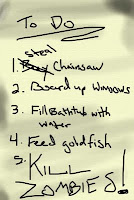 To Do
steal
1. Buy Chainsaw
2. Board up Windows
3. Fill Bathtub with
water
4. Feed goldfish
5. KILL
ZOMBIES!